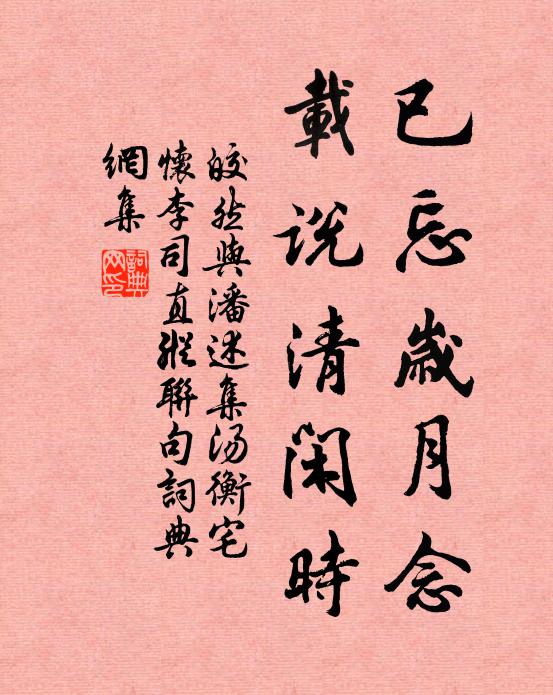 已忘歲月念
載説清閑時
皎然與潘述集湯衡宅
懷李司直縱聯句詞典
網集
詞典
网印